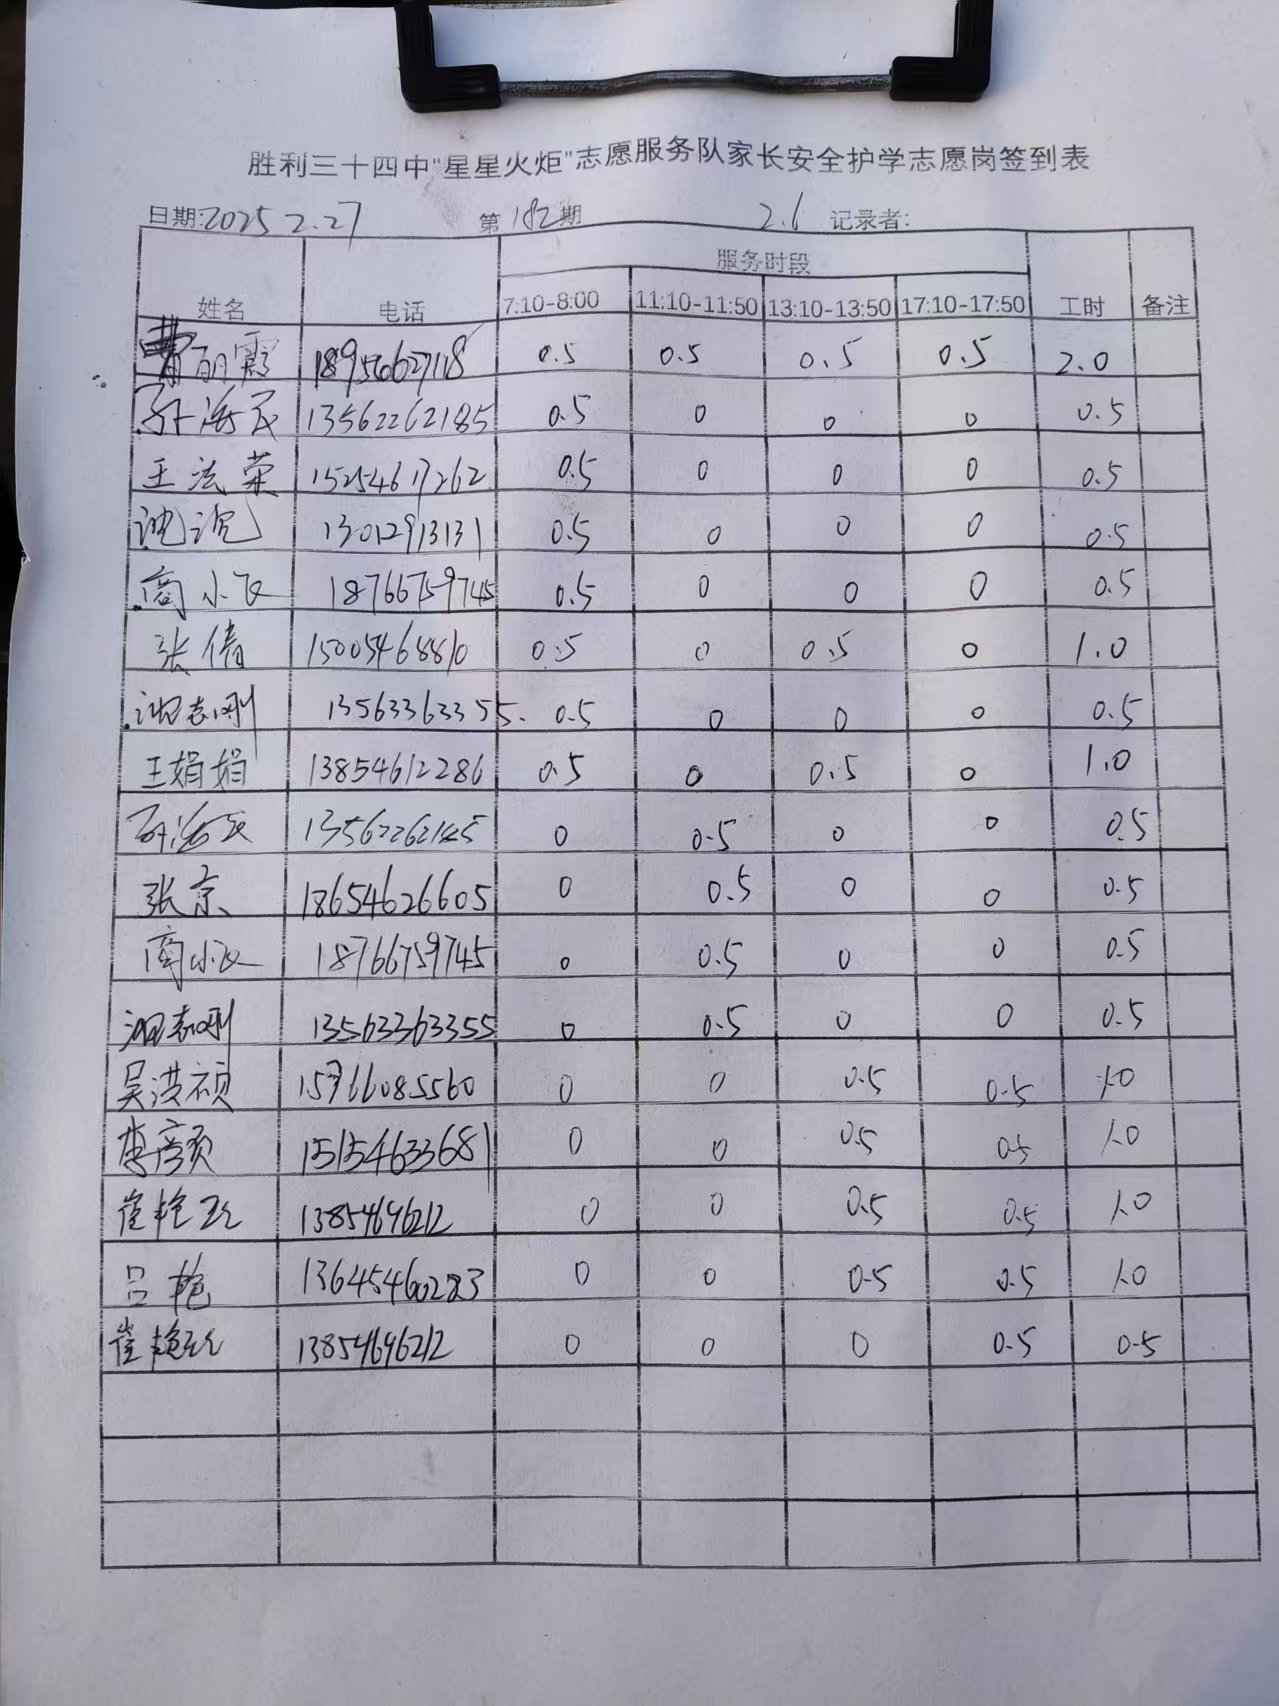 胜利三十四中"星星火炬"志愿服务队家长安全护学志愿岗签到表
日期:2025 2.27 第182期 2.6 记录者:
服务时段
姓名 电话 7:10-8:00 11:10-11:50 13:10-13:50 17:10-17:50 工时 备注
丽霞 18956627118 0.5 0.5 0.5 0.5 2.0
孙海民 13562262185 0.5 0 0 0 0.5
王法荣 15254617262 0.5 0 0 0 0.5
13012913131 0.5 0 0 0 0.5
商小飞 18766759745 0.5 0 0 0 0.5
张倩 15005468810 0.5 0 0.5 0 1.0
志刚 13563363355 0.5 0 0 0 0.5
王娟娟 13854612286 0.5 0 0.5 0 1.0
0 0.5 0 0 0.5
张京 18654626605 0 0.5 0 0 0.5
商小飞 18766759745 0 0.5 0 0 0.5
志刚 13563363355 0 0.5 0 0 0.5
吴洪硕 0 0 0.5 0.5 1.0
李彦 15154633681 0 0 0.5 0.5 1.0
崔艳 13854696212 0 0 0.5 0.5 1.0
吕艳 13645460283 0 0 0.5 0.5 1.0
崔艳 13854696212 0 0 0 0.5 0.5